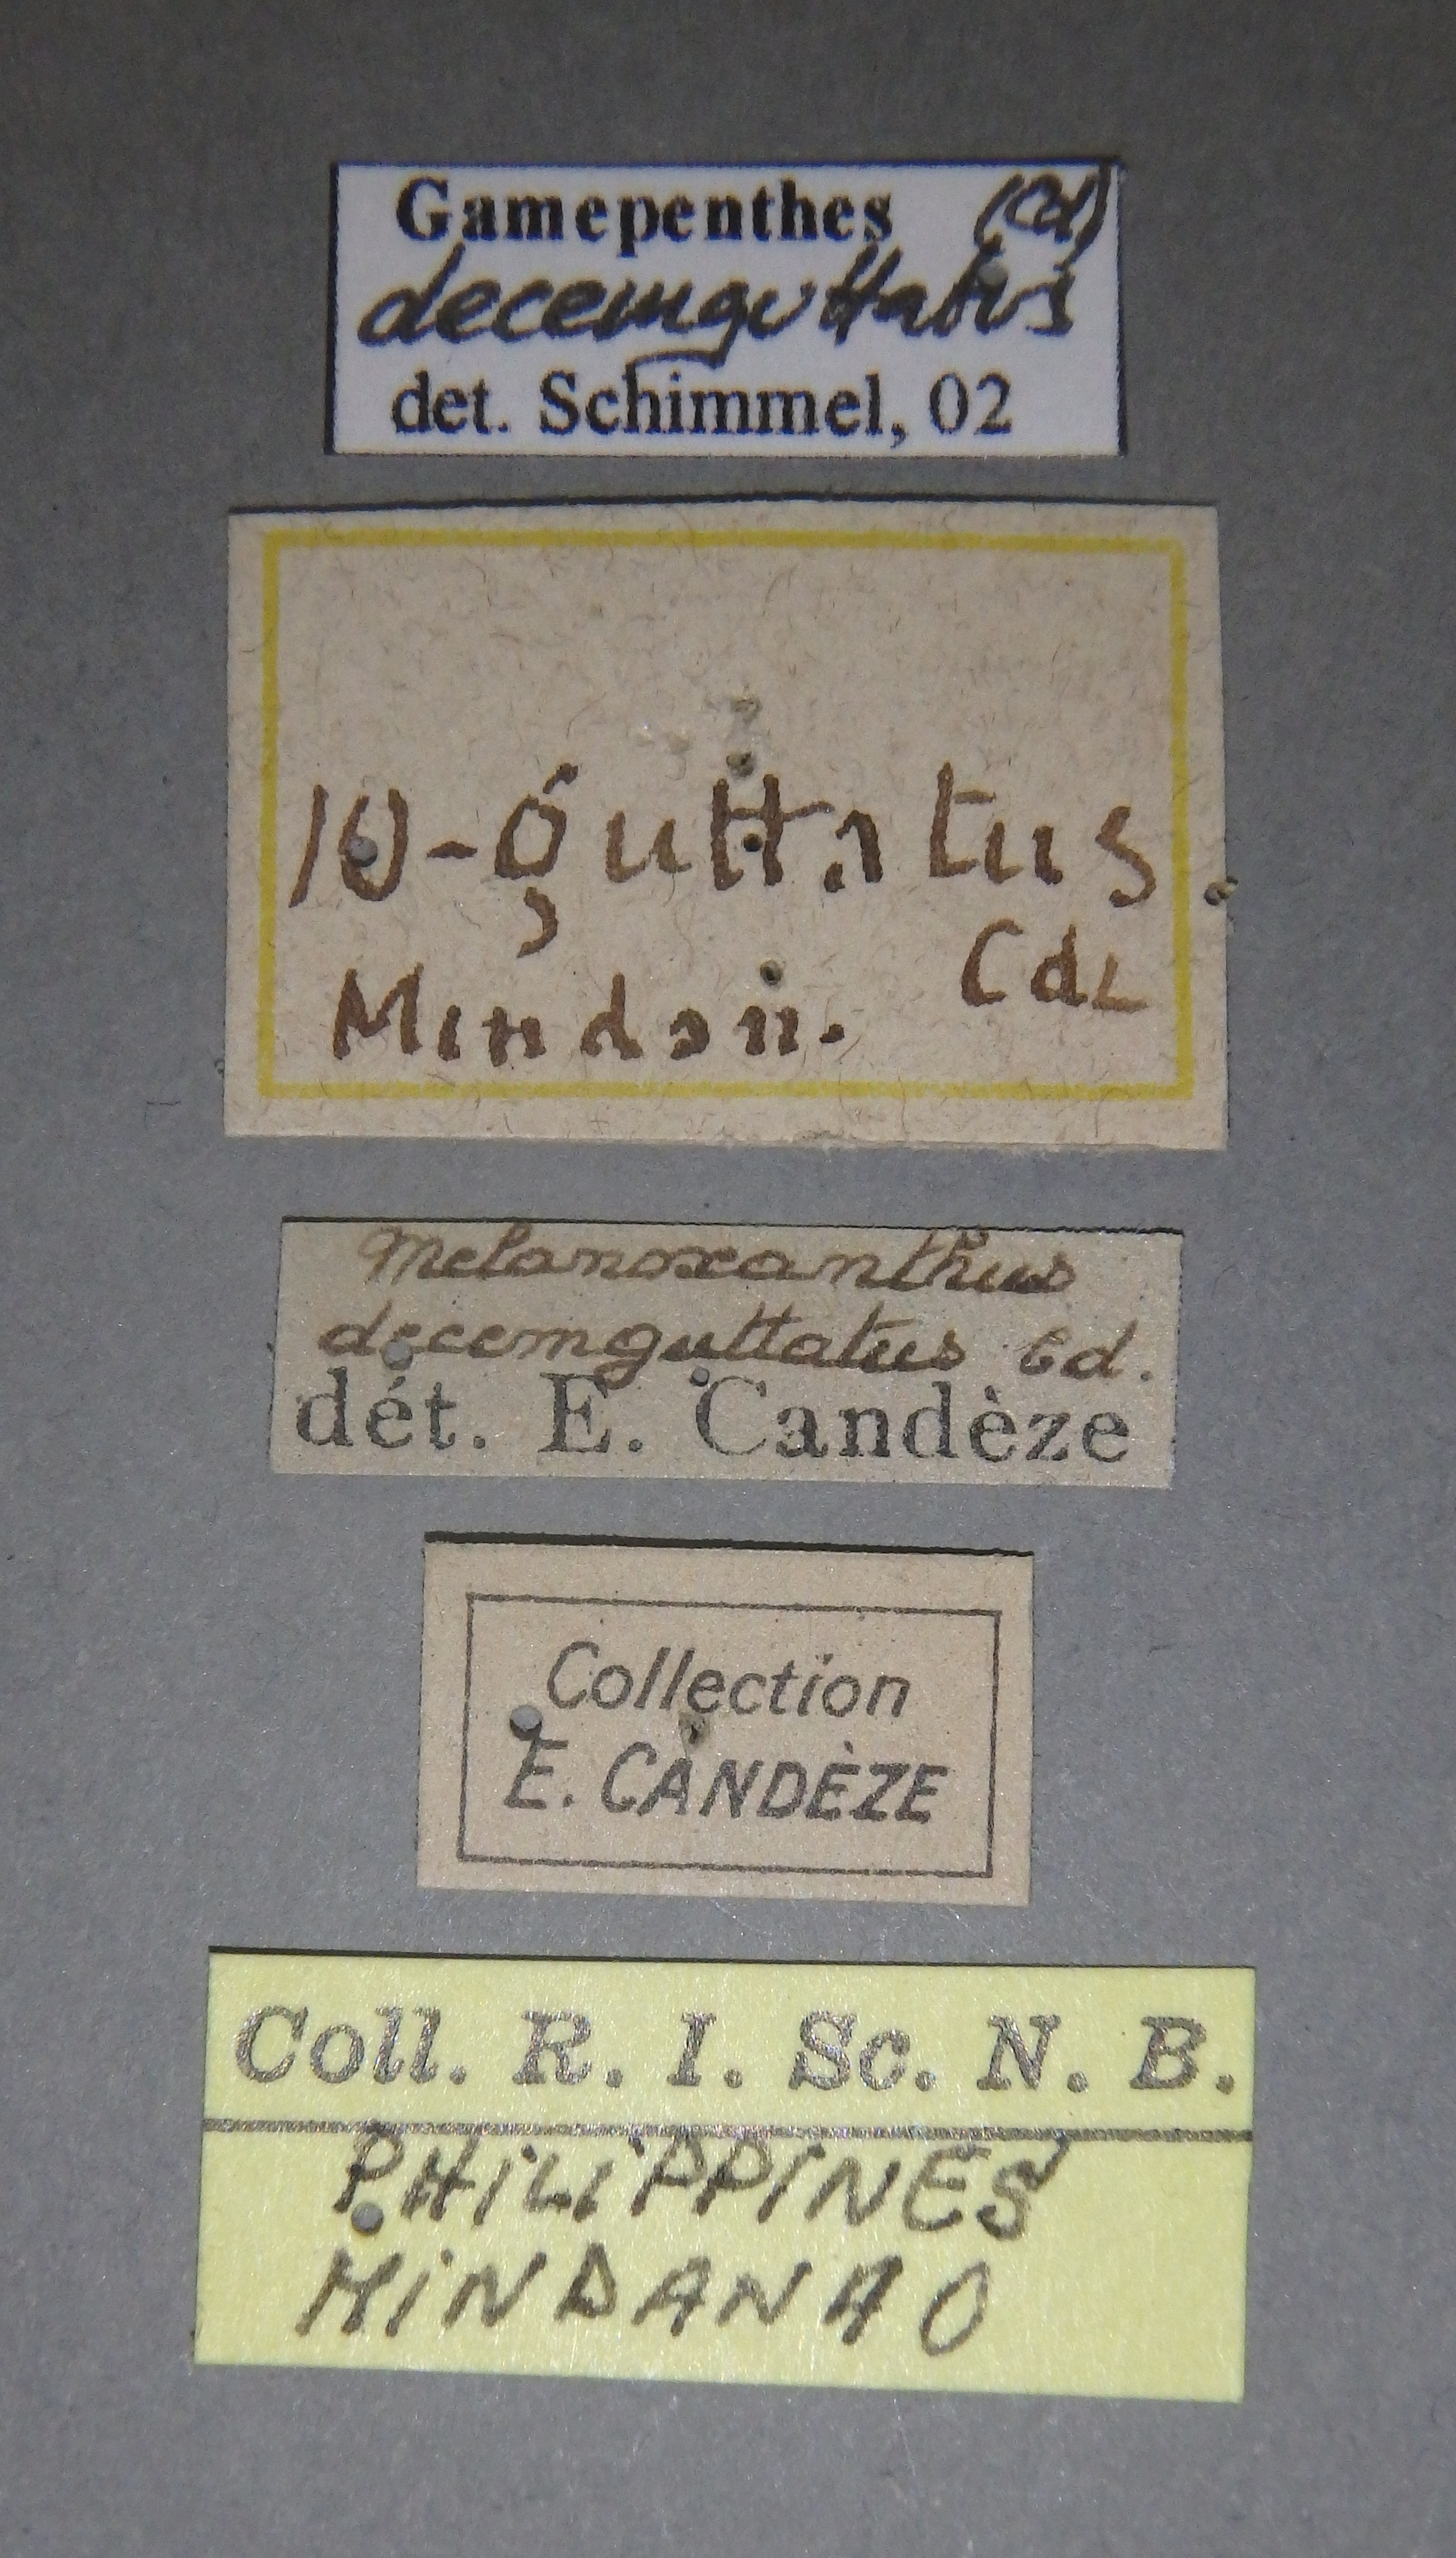 Gamepenthes (Cd)
decemguttatus
det. Schimmel, 02
10-guttatus.
Cdz
Mindan.
Melanoxanthus
decemguttatus Cd.
dét. E. Candèze
Collection
E. CANDÈZE
Coll. R. I. Sc. N. B.
PHILIPPINES
MINDANAO